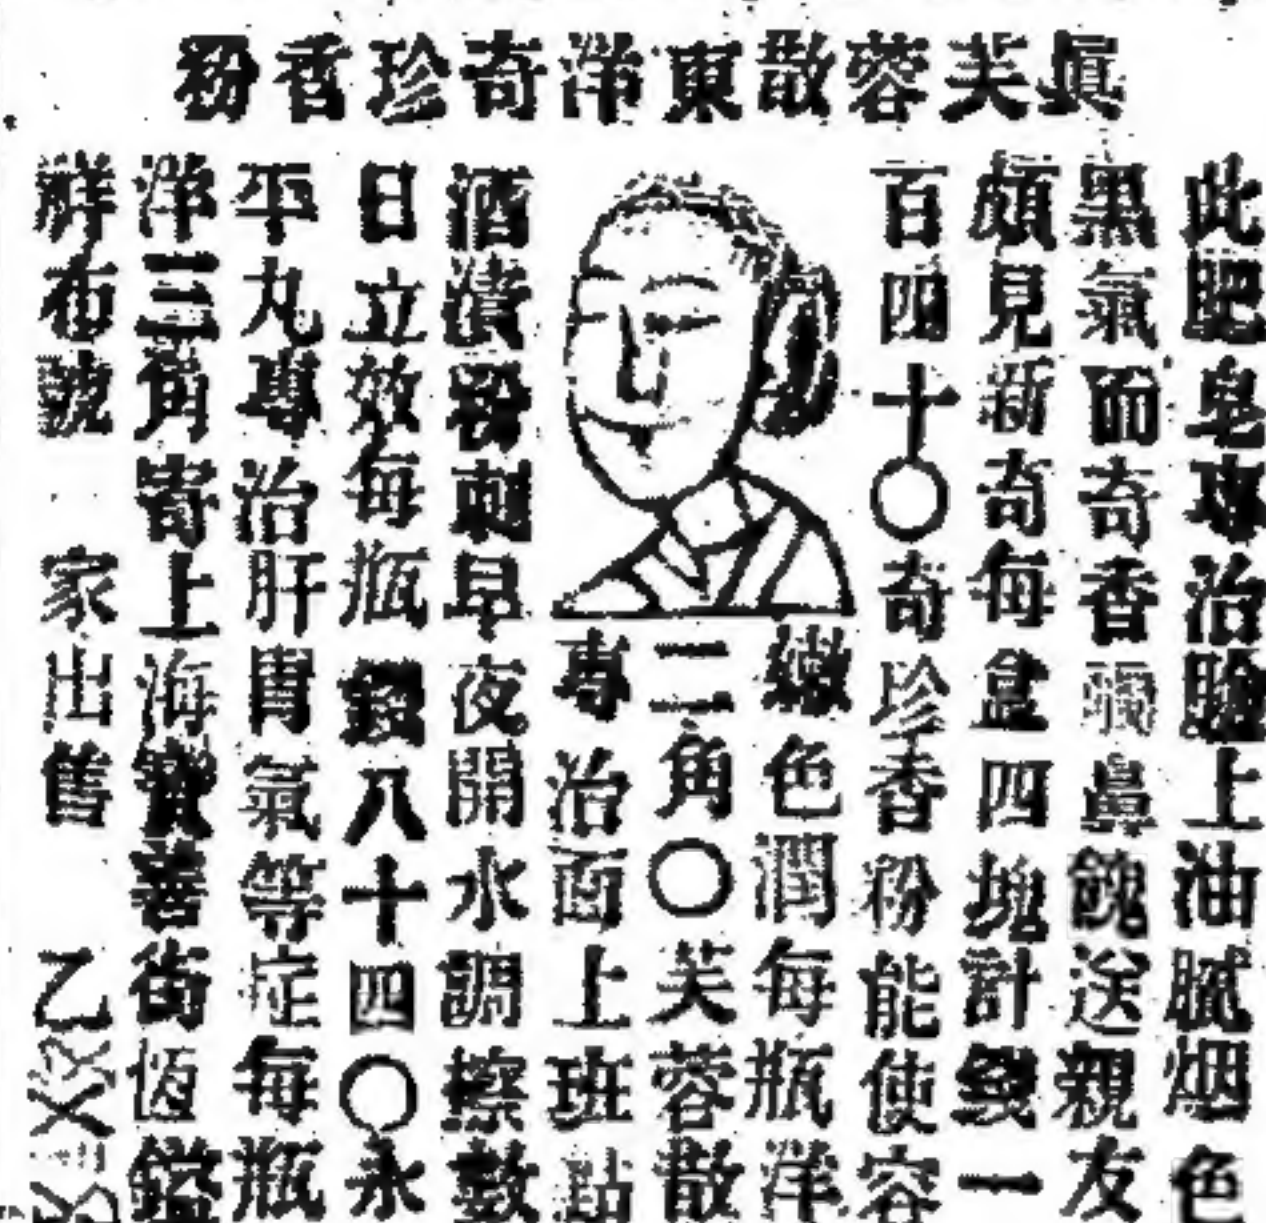 真芙蓉散東洋奇珍香粉
此肥皂專治臉上油膩烟色
黑氣而奇香撲鼻餽送親友
頗見新奇每盒四塊計錢一
百四十〇奇珍香粉能使容
嫩色潤每瓶洋
二角〇芙蓉散
專治面上班點
酒漬粉刺早夜開水調擦數
日立效每瓶錢八十四〇永
平丸專治肝胃氣等症每瓶
洋三角寄上海寶善街恆鎰
祥布號 家出售 乙